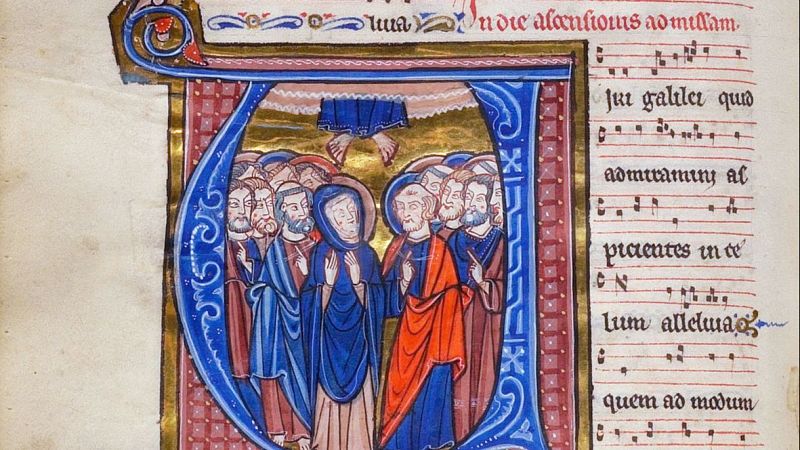 luia In die ascensionis ad missam.
iri galilei quid
admiramini as
picientes in ce
lum alleluia
quem ad modum